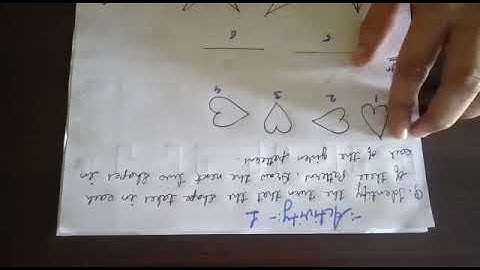 :-Activity:- 1
Q. Identify the turn that the shape takes in each
of these pattern. Draw the next two shapes in
each of the given pattern.
1 2 3 4
5 6